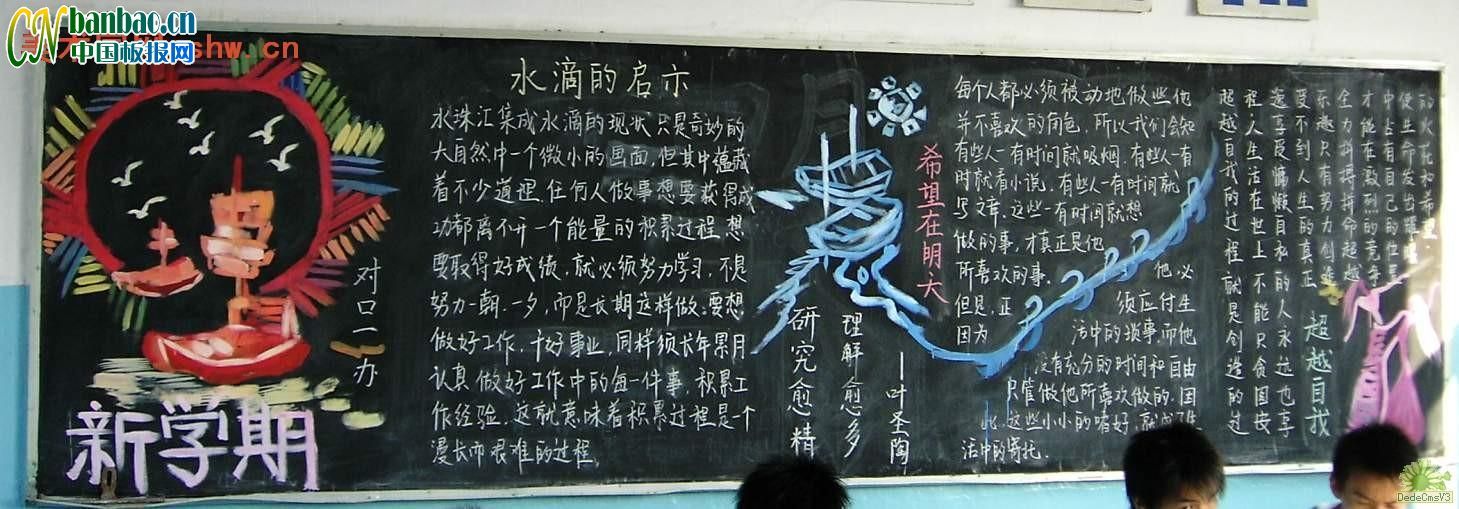 CNbanbao.cn
中国板报网
shw.cn
新学期
对口一办
水滴的启示
水珠汇集成水滴的现状只是奇妙的
大自然中一个微小的画面,但其中蕴藏
着不少道理.任何人做事想要获得成
功都离不开一个能量的积累过程.想
要取得好成绩,就必须努力学习,不是
努力一朝.一夕,而是长期这样做。要想
做好工作,干好事业,同样须长年累月
认真做好工作中的每一件事,积累工
作经验.这就意味着积累过程是一个
漫长而艰难的过程.
研究愈精
理解愈多
—叶圣陶
希望在明天
每个人都必须被动地做些他
并不喜欢的角色,所以我们会知
有些人一有时间就吸烟.有些人一有
时就看小说.有些人一有时间就
写文章.这些一有时间就想
做的事,才真正是他
所喜欢的事.他必
但是,正须应付生
因为活中的琐事,而他
没有充分的时间和自由
只管做他所喜欢做的.因
此,这些小小的嗜好,就成了生
活中的寄托.
超越自我
的火花和希望.
使生命发出耀眼
中占有自己的位置
才能在激烈的竞争
全力拼搏拼命超越
乐趣只有努力创造
受不到人生的真正
逸享受慵懒自私的人永远也享
程.人生主在世上不能只贪图安
超越自我的过程就是创造的过